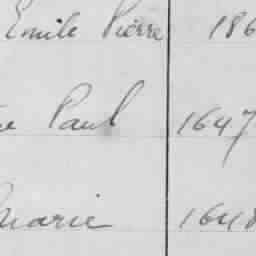 Emile Pierre 186
Paul 1647
Marie 1648